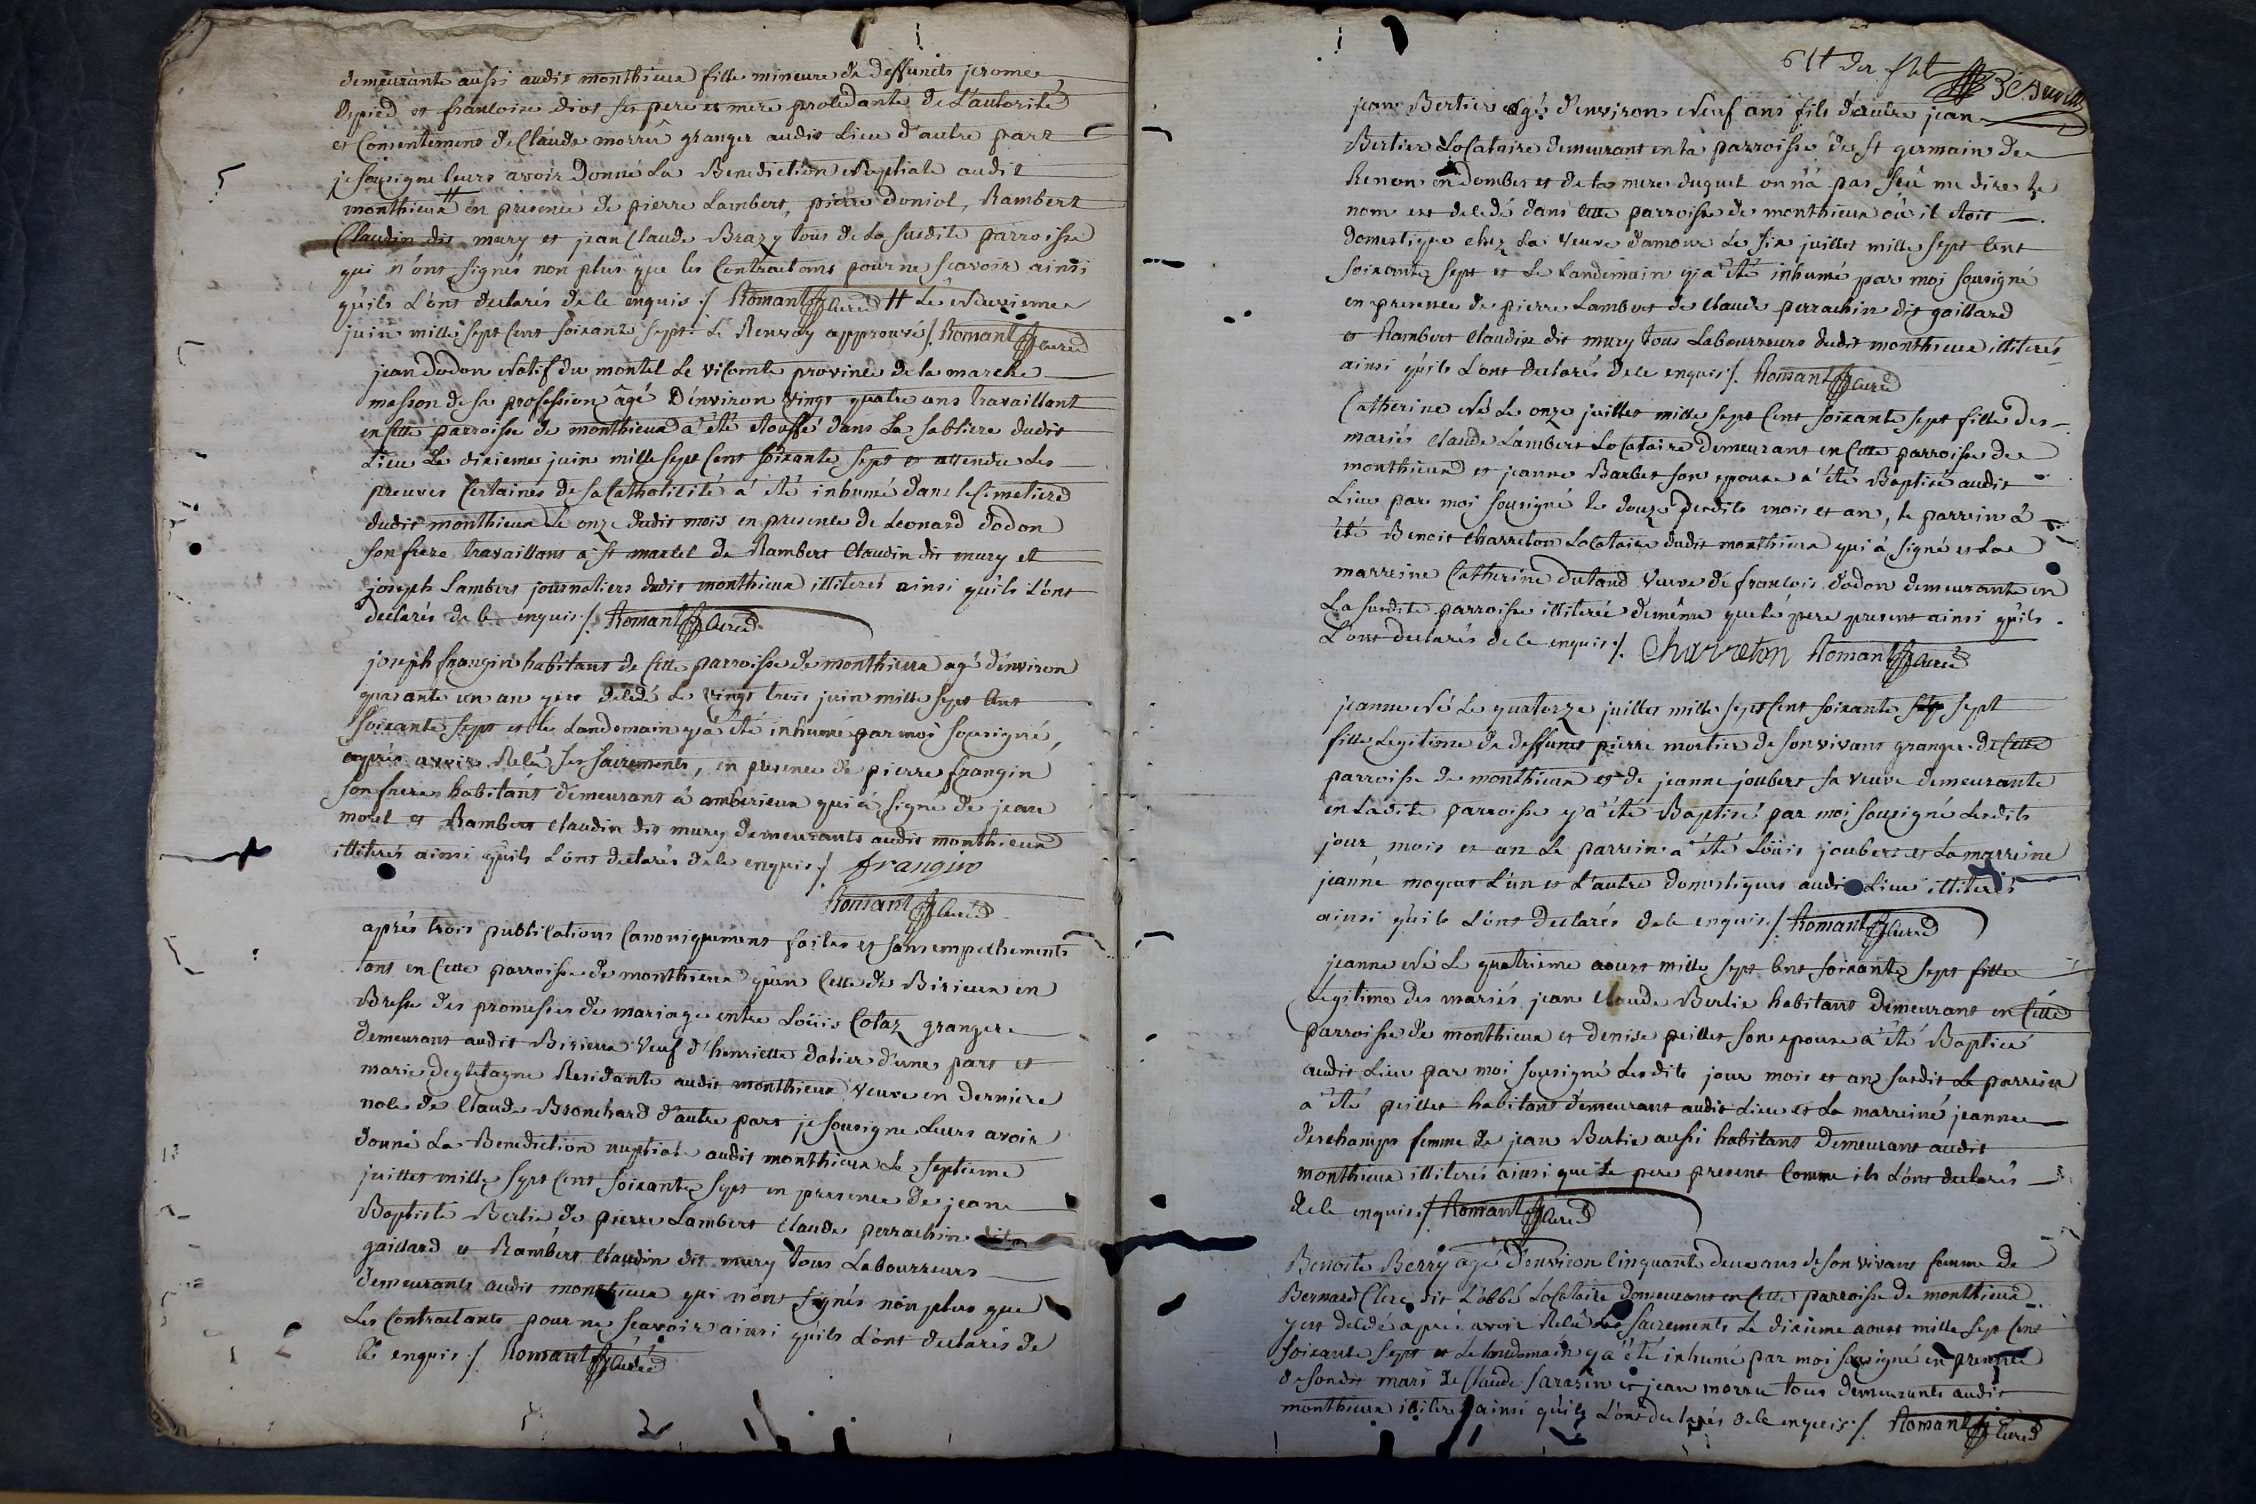 demeurante aussi audit monthieux fille mineure de deffunts jerome
Depied et francoise diot ses pere et mere procedante de L'autorité
et Consentement de Claude morrê granger audit Lieu d'autre part
je sousigne leurs avoir Donné La Benediction Nuptiale audit
monthieux # en presence de pierre Lambert, pierre doniol, Rambert
Claudin dit mury et jean Claude Brazy tous de La susdite parroisse
qui n'ont signés non plus que les Contractants pour ne scavoir ainsi
qu'ils L'ont declarés de ce enquis ./. Romant Curé # Le Neuvieme
juin mille sept Cent soixante sept: Le Renvoy approuvé ./. Romant Curé
jean dodon Natif du montel Le Vicomte province de la marche
masson de sa profession âgé D'environ vingt quatre ans travaillant
en Cette parroisse de monthieux a été étouffé dans La sabliere dudit
Lieu Le dixieme juin mille sept Cent soixante sept et attendu Les
preuves Certaines de sa Catholicité a été inhumé dans le Cimetiere
dudit monthieux Le onze dudit mois en presence de Leonard dodon
son frere travaillant a St marcel de Rambert Claudin dit mury et
joseph Lambert journaliers dudit monthieux illiterés ainsi qu'ils L'ont
declarés de Ce enquis ./. Romant Curé
joseph frangin habitant de Cette parroisse de monthieux agé d'environ
quarante un an y est decedé Le vingt trois juin mille sept Cent
soixante sept et le Landemain y a été inhumé par moi sousigné,
après avoir Recû ses sacrements, en presence de pierre frangin
son frere habitant demeurant à amberieux qui à signé de jean
morel et Rambert claudin dit mury demeurants audit monthieux
illiterés ainsi qu'ils L'ont declarés de ce enquis ./. frangin
Romant Curé
aprés trois publications Canoniquement faites et sans empechements
tant en Cette parroisse de monthieux qu'en Celle de Birieux en
Bresse des promesses de mariage entre Loüis Colaz granger
demeurant audit Birieux Veuf d'henriette datier d'une part et
marie degletagne Residante audit monthieux veuve en derniere
noce de Claude Bronchard d'autre part je sousigne Leurs avoir
donné La Benediction nuptiale audit monthieux Le septieme
juillet mille sept Cent soixante sept en presence de jean
Baptiste Berlie de pierre Lambert Claude perrachin dit
gaillard et Rambert Claudin dit mury tous Labourreurs
demeurants audit monthieux qui n'ont signés non plus que
Les Contractants pour ne scavoir ainsi qu'ils L'ont declarés de
Ce enquis ./. Romant Curé
jean Bertier agé d'environ Neuf ans fils d'autre jean
Bertier Locataire demeurant en la parroisse de St germain de
Renon en dombes et de la mere duquel on n'a pas sçû me dire le
nom est decedé dans cette parroisse de monthieux où il étoit
domestique chez La veuve damour Le six juillet mille sept Cent
soixante sept et Le Landemain y a été inhumé par moi sousigné
en presence de pierre Lambert de Claude perrachin dit gaillard
et Rambert Claudin dit mury tous Labourreurs dudit monthieux illiterés
ainsi qu'ils L'ont declarés de ce enquis ./. Romant Curé
Catherine Né Le onze juillet mille sept Cent soixante sept fille des
mariés Claude Lambert Locataire demeurant en Cette parroisse de
monthieux et jeanne Barbet son epouse a été Baptisé audit
Lieu par moi sousigné le douze desdits mois et an, le parrein à
été Benoit Charreton Locataire dudit monthieux qui à signé et La
marreine Catherine dutand Veuve de francois dodon demeurante en
La susdite parroisse illiterée de même que le pere present ainsi qu'ils
L'ont declarés de ce enquis ./. Charreton Romant Curé
jeanne Né Le quatorze juillet mille sept Cent soixante sept
fille Legitime de deffunt pierre mortier de son vivant granger de Cette
parroisse de monthieux et de jeanne joubert sa veuve demeurante
en Ladite parroisse y a été Baptisé par moi sousigné Lesdits
jour, mois et an Le parrein a été Loüis joubert et La marreine
jeanne moyeux L'un et L'autre domestiques audit Lieu illiterés
ainsi qu'ils L'ont declarés de ce enquis ./. Romant Curé
jeanne Né Le quatrieme aoust mille sept Cent soixante sept fille
Legitime des mariés jean Claude Berlie habitant demeurant en Cette
parroisse de monthieux et denise peillet son epouse a été Baptisé
audit Lieu par moi sousigné Lesdits jour mois et an susdit Le parrein
a été peillet habitant demeurant audit Lieu et La marreine jeanne
deschamps femme de jean Berlie aussi habitant demeurant audit
monthieux illiterés ainsi que Le pere present Comme ils L'ont declarés
de ce enquis ./. Romant Curé
Benoite Berry agé d'environ Cinquante deux ans de son vivant femme de
Bernard Clerc dit L'abbé Locataire demeurant en Cette parroisse de monthieux
y est decedé aprés avoir Recû Les sacrements Le dixieme aoust mille sept Cent
soixante sept et Le landemain y a été inhumé par moi sousigné en presence
de sondit mari de Claude sarasin et jean morre tous demeurants audit
monthieux illiterés ainsi qu'ils L'ont declarés de ce enquis ./. Romant Curé